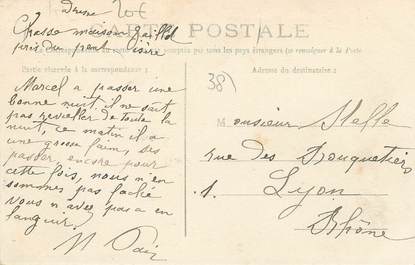 Drome 20€
CARTE POSTALE
Chasse maison Gaillot
près du pont Isère
pays étrangers (se renseigner à la Poste
Partie réservée à la correspondance
Adresse du destinataire
38
Marcel a passer une
bonne nuit. il ne sait
pas reveiller de toute la
nuit, ce matin il a
une grosse faim, ses
passer, encore pour
cette fois, nous n'en
sommes pas faché
vous n avez pas a en
languir.
Monsieur Stelle
rue des Bouquetier
1.
Lyon
Rhône